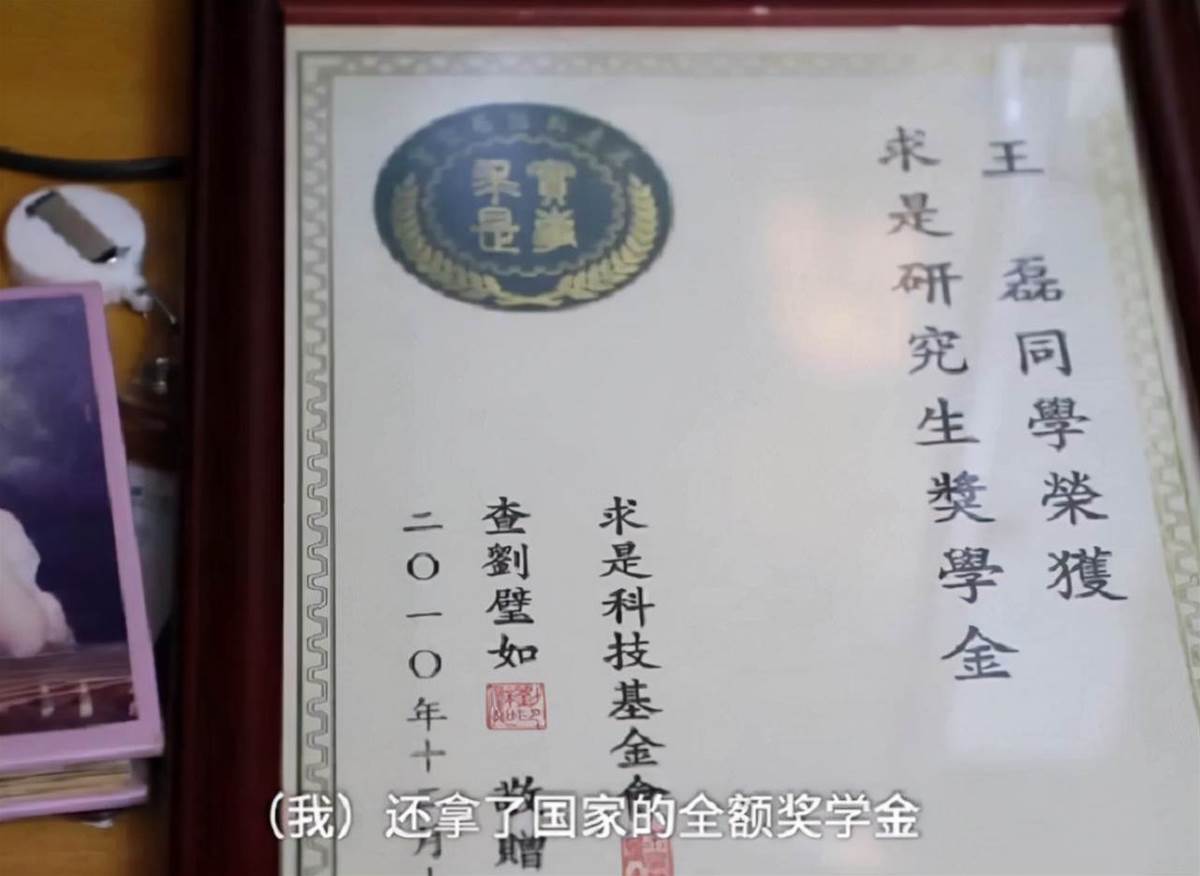 王磊同學榮獲
求是研究生獎學金
求是科技基金會
查劉璧如 敬贈
二〇一〇年十二月
實業求是
(我)还拿了国家的全额奖学金